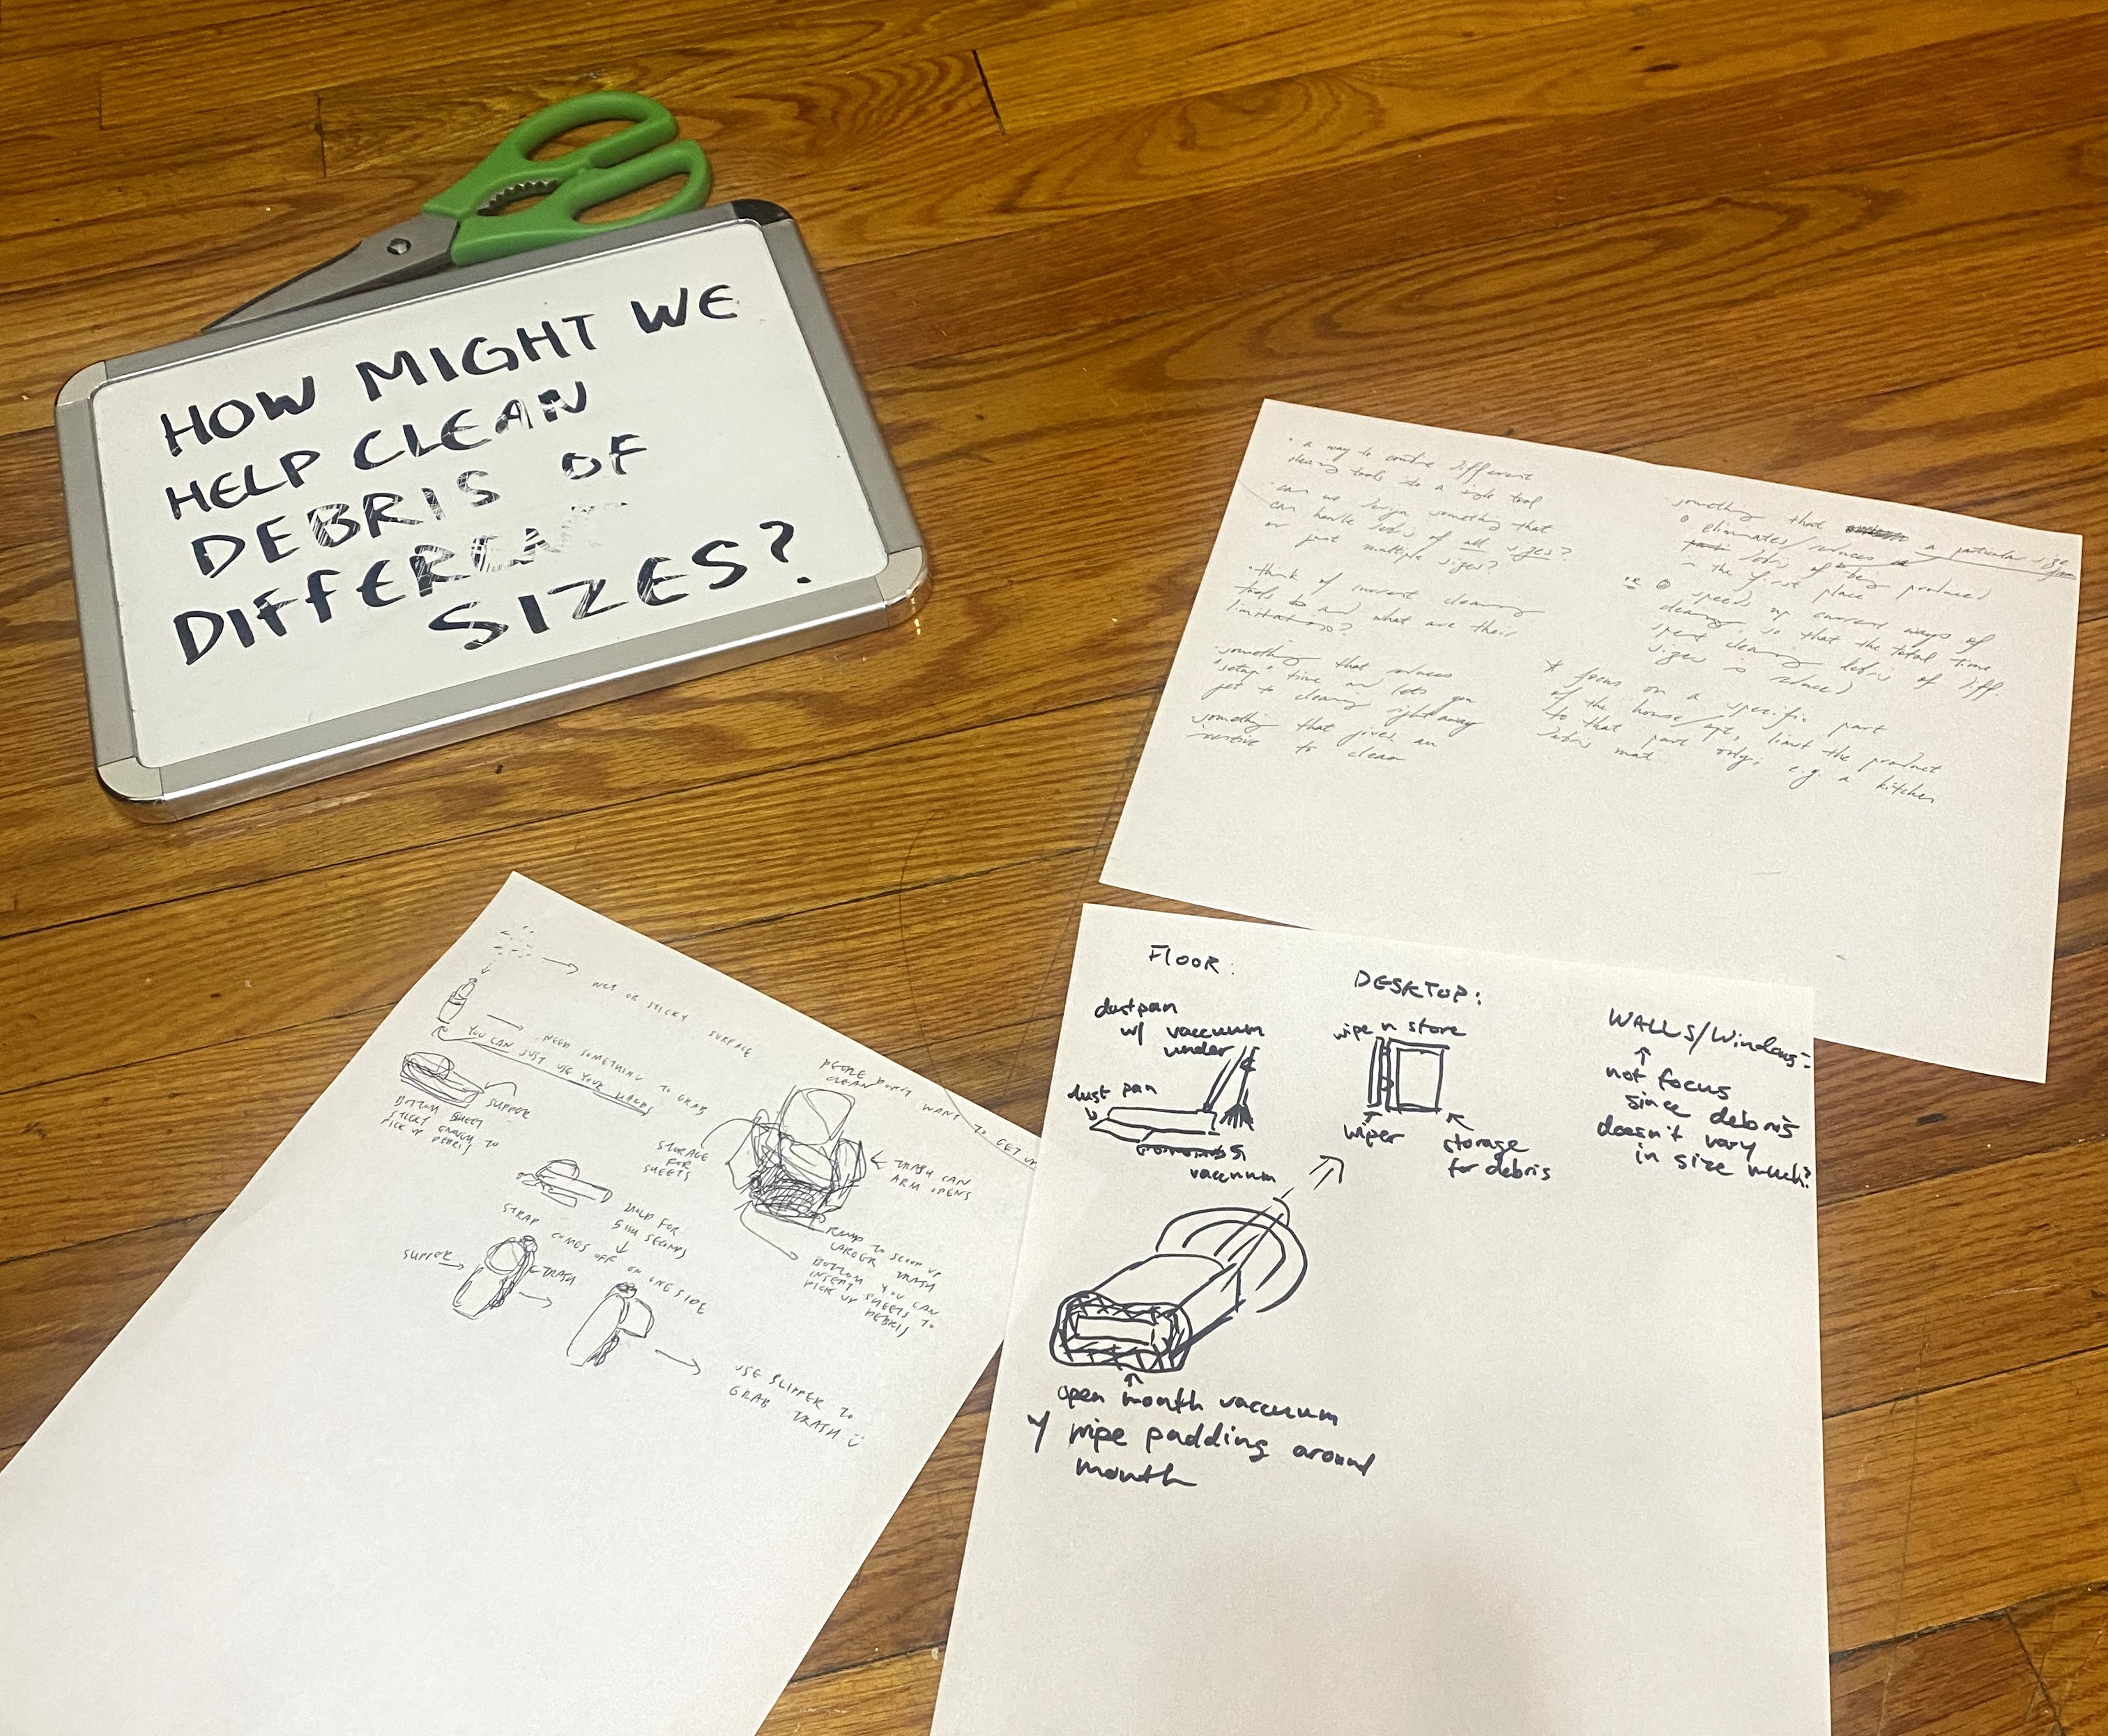 HOW MIGHT WE
HELP CLEAN
DEBRIS OF
DIFFERENT
SIZES?
a way to different
cleaning tools into a single tool
can we design something that
can handle debris of all sizes?
or just multiple sizes?
think of current cleaning
tools and what are their
limitations?
something that reduces
"setup" time and lets you
get to cleaning right away
something that gives an
to clean
something that a particular size
eliminates/reduces
debris of being produced
in the first place
speeds up current ways of
cleaning so that the total time
spent cleaning debris of diff
sizes is reduced
* focus on a specific part
of the house/apt, limit the product
to that part only, e.g. a kitchen
debris mat
WET OR STICKY SURFACE
NEED SOMETHING TO GRAB
YOU CAN JUST USE YOUR HANDS
SLIPPER
BOTTOM SHEET
STICKY ENOUGH TO
PICK UP DEBRIS
PEOPLE DON'T WANT TO GET UP
CLEAN
STORAGE
FOR
SHEETS
TRASH CAN
ARM OPENS
RAMP TO SCOOP UP
LARGER TRASH
BOTTOM YOU CAN
INSERT SHEETS TO
PICK UP DEBRIS
HOLD FOR
SECONDS
STRAP
COMES OFF ON ONE SIDE
SLIPPER
TRASH
USE SLIPPER TO
GRAB TRASH
FLOOR:
dustpan
w/ vaccuum
under
dust pan
vaccuum
DESKTOP:
wipe n store
wiper
storage
for debris
WALLS/Windows:
not focus
since debris
doesn't vary
in size much?
open mouth vaccuum
w/ wipe padding around
mouth